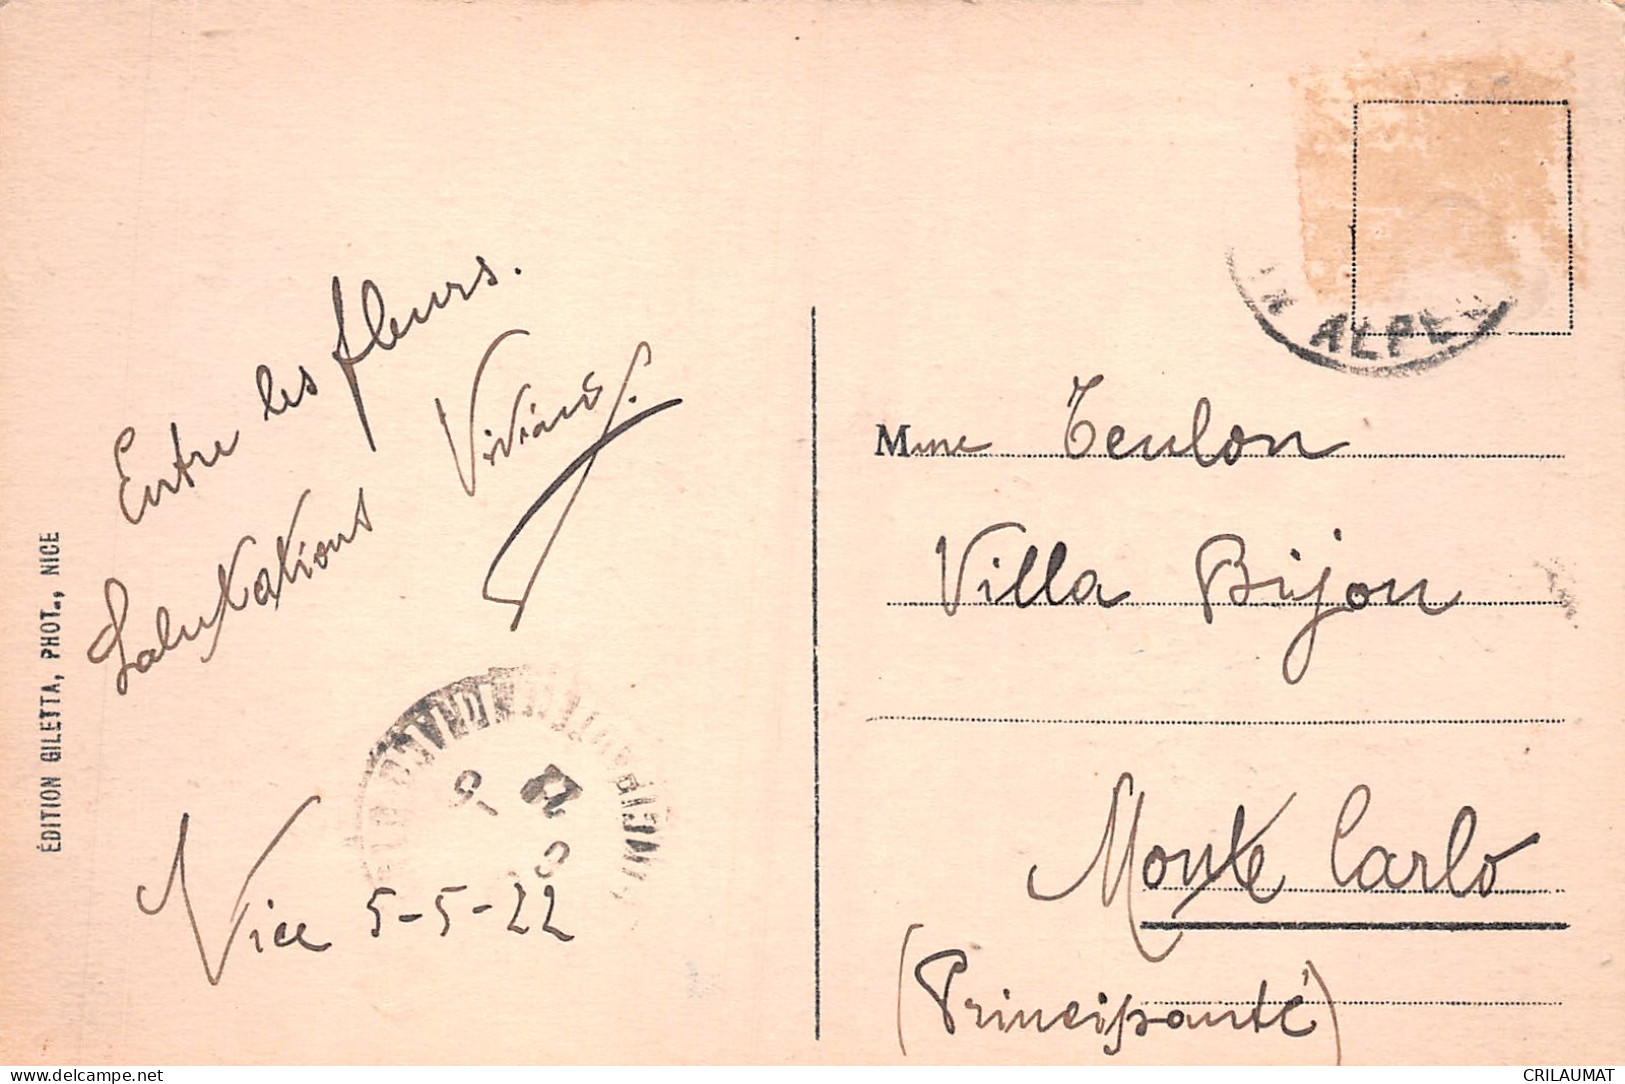 Entre les fleurs.
Salutations Viviane.
Nice 5-5-22
ÉDITION GILETTA, PHOT., NICE
ALPES
22
5
Mme Teulon
Villa Bijou
Monte Carlo
(Principauté)
delcampe.net
CRILAUMAT